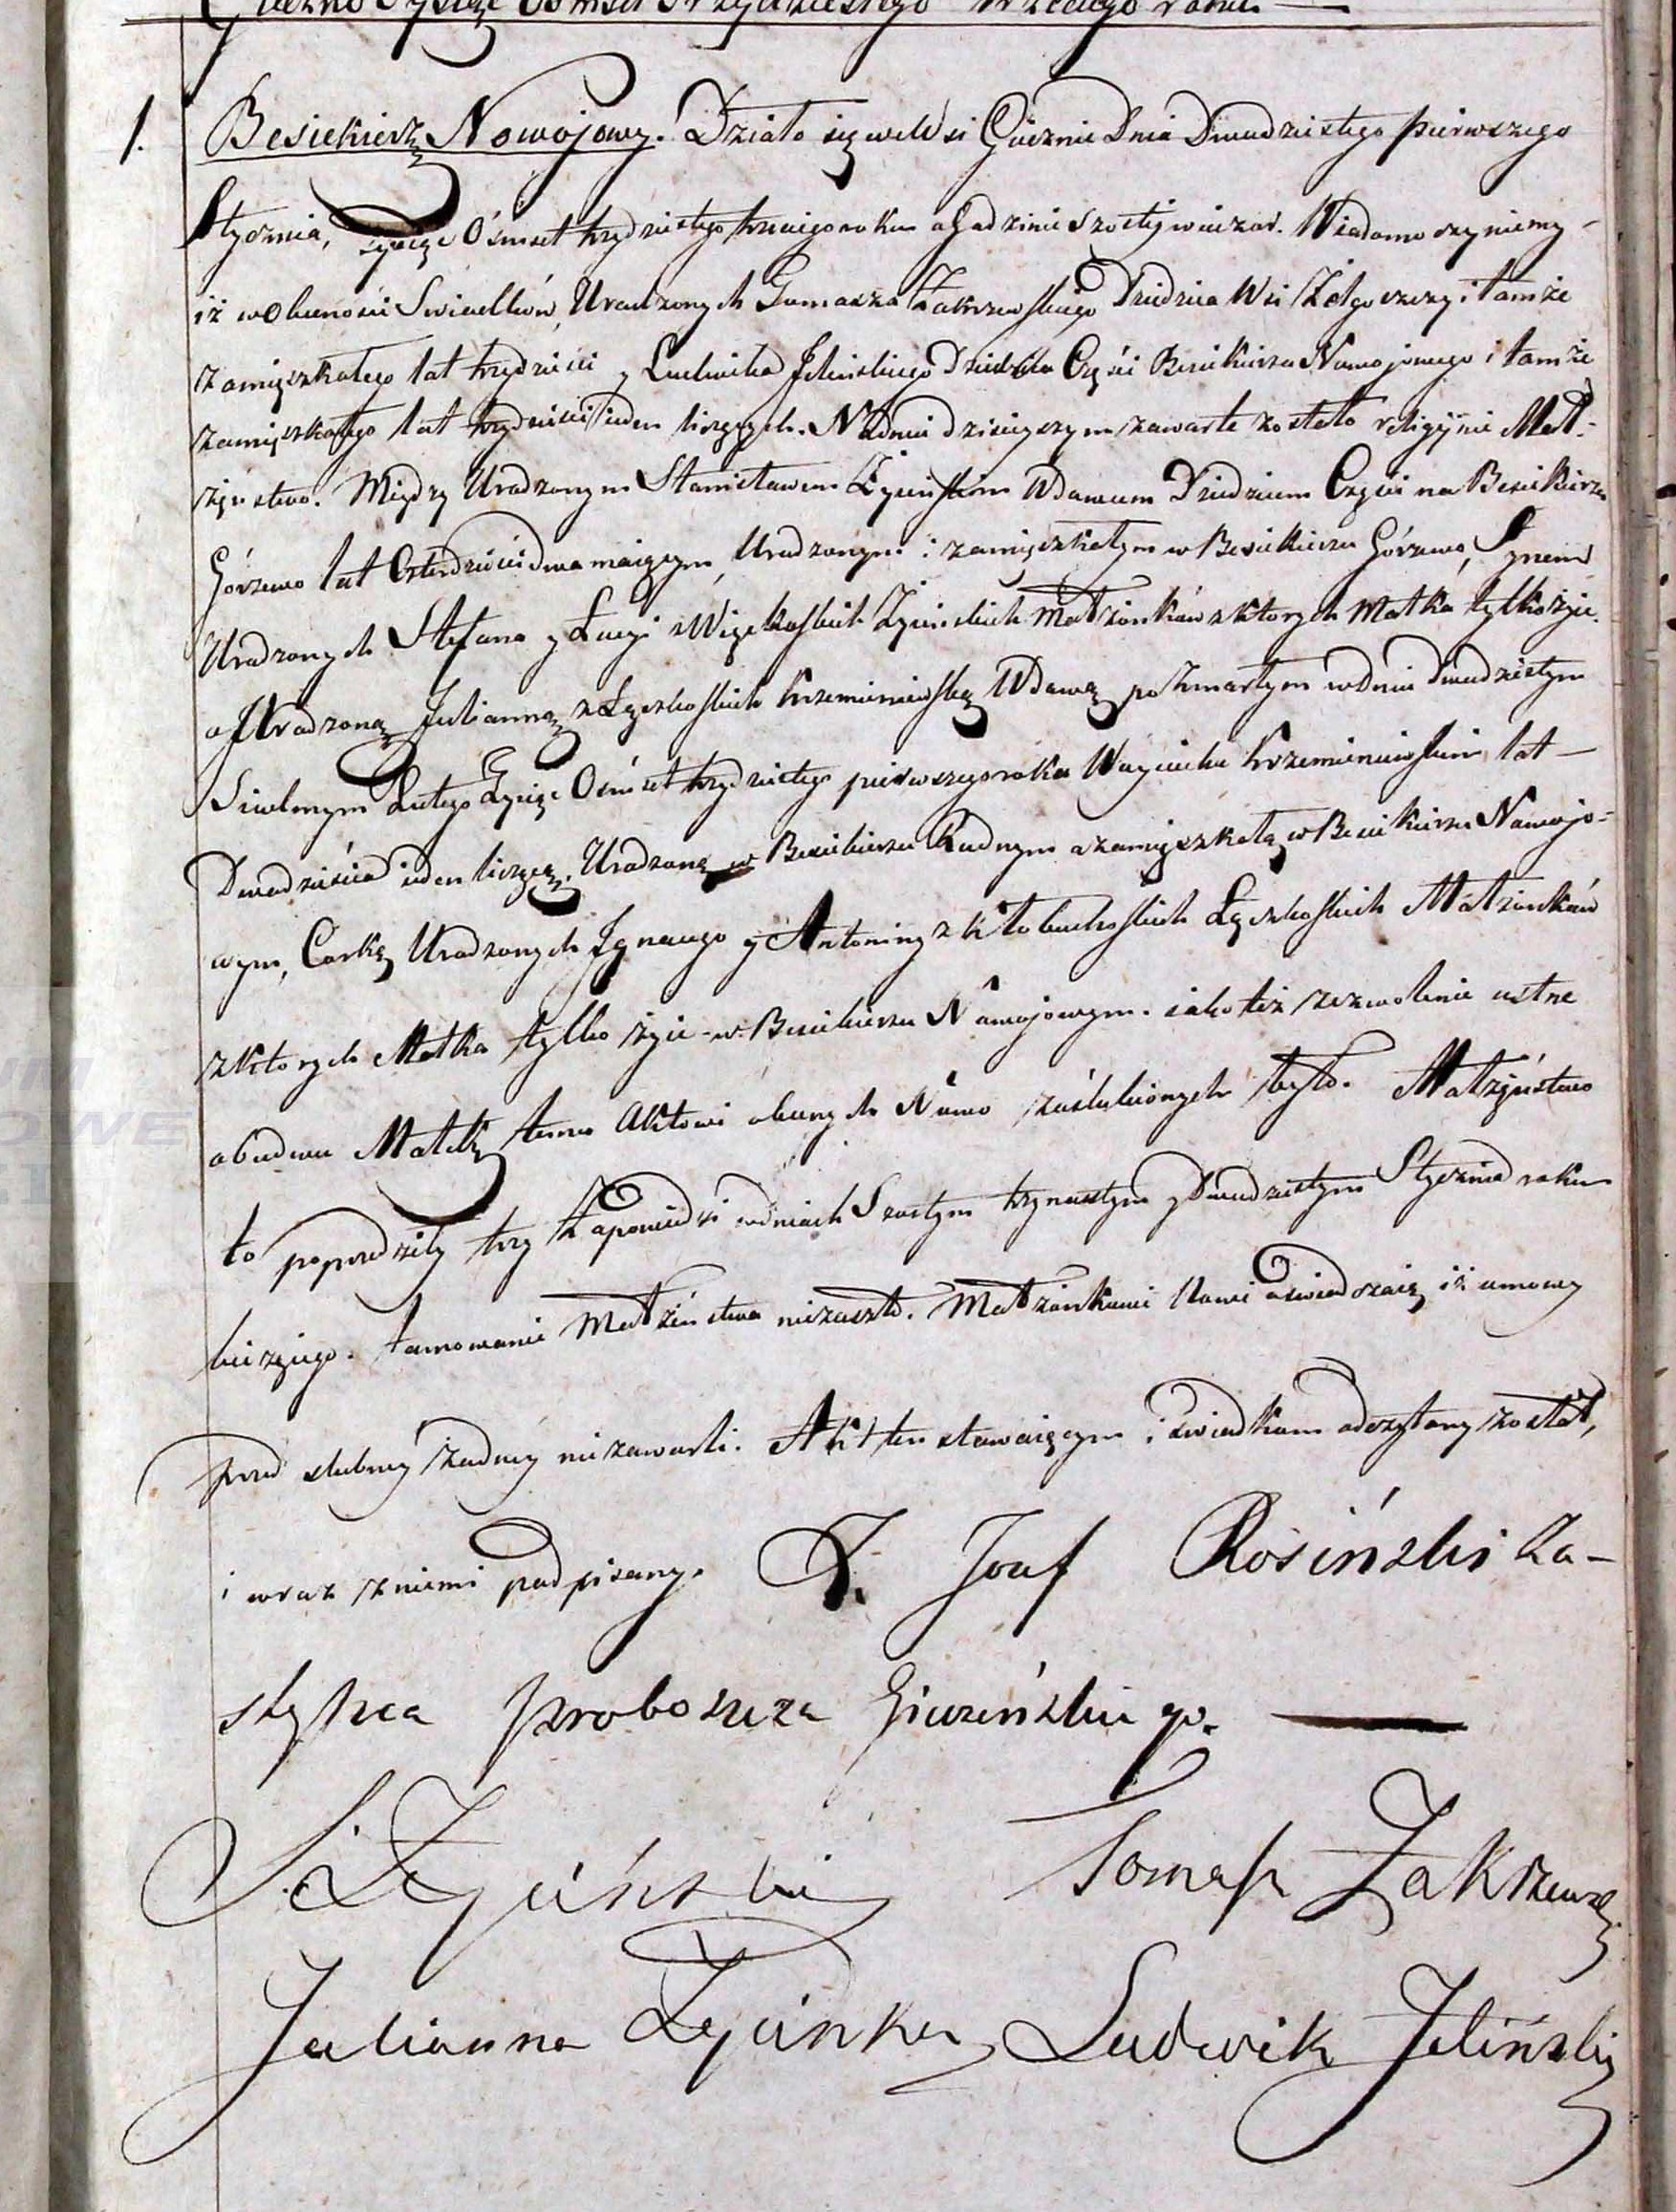 Tysiąc Ośmset Trzydziestego Trzeciego roku
1. Besiekiersz Nowojowy. Działo się we Wsi Giecznie Dnia Dwudziestego pierwszego
Stycznia, Tysiąc Ośmset trzydziestego trzeciego roku o Godzinie szostej wieczor. Wiadomo czyniemy
iż w obecności Swiadków, Urodzonych Tomasza Zakrzewskiego Dziedzica Wsi i tamże
zamięszkałego lat trzydzieści y Ludwika Jelińskiego Dziedzica Części Besiekiersza Nowojowego i tamże
zamięszkałego lat trzydzieści ieden liczących. Na dniu dzisieyszym zawarte zostało religijnie Mał-
żęństwo. Między Urodzonym Stanisławem Życińskim Wdowcem Dziedzicem Części na Besiekierzu
Górzewo lat Czterdzieści dwa maiącym, Urodzonym i zamięszkałym w Besiekierzu Górzewo, Synem
Urodzonych Stefana y Łucyi z Życińskich Małżonków z ktorych Matka tylko żyie.
a Urodzoną Julianną z Łączkoskich Krzemieniewską Wdową po Zmarłym w dniu Dwudziestym
Siodmym Lutego Tysiąc Ośmset trzydziestego pierwszego roku Woyciechu Krzemieniewskim, lat
Dwadzieścia ieden liczącą. Urodzoną w Besiekierzu Rudnym a zamięszkałą w Besiekierzu Nowojo-
wym, Corką Urodzonych Ignacego y Antoniny z Kłobuchoskich Łączkoskich Małżonków
z ktorych Matka tylko żyie w Besiekierzu Nowojowym. iako też zezwolenie ustne
obudwu Matek temu Aktowi obecnych Nowo zaślubionych było. Małżęństwo
to poprzedziły trzy Zapowiedzi w dniach Szostym trzynastym y Dwudziestym Stycznia roku
bieżącego. tamowanie Małżeństwa niezaszło. Małżonkowie Nowi oświadczaią iż umowy
przed slubnej żadnej niezawarli. Akt ten stawaiącym i świadkom odczytany został,
i wraz z niemi podpisany. X. Jozef Rosiński Za-
stępca Proboszcza Gieczińskiego.
S. Życiński Tomasz Zakrzewski
Julianna Życińska Ludwik Jeliński